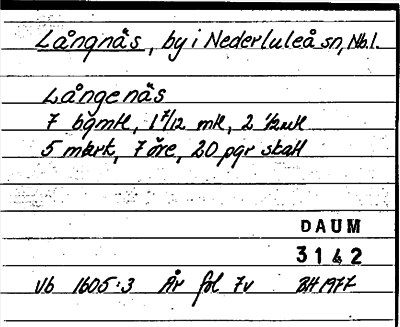 Långnäs, by i Nederluleå sn, Nb.l.
Långenäs
7 bgmk, 1 7/12 mk, 2 1/2 mk
5 mark, 7 öre, 20 pgr skatt
DAUM
3142
Vb 1605:3 År fol 7v BH 1977